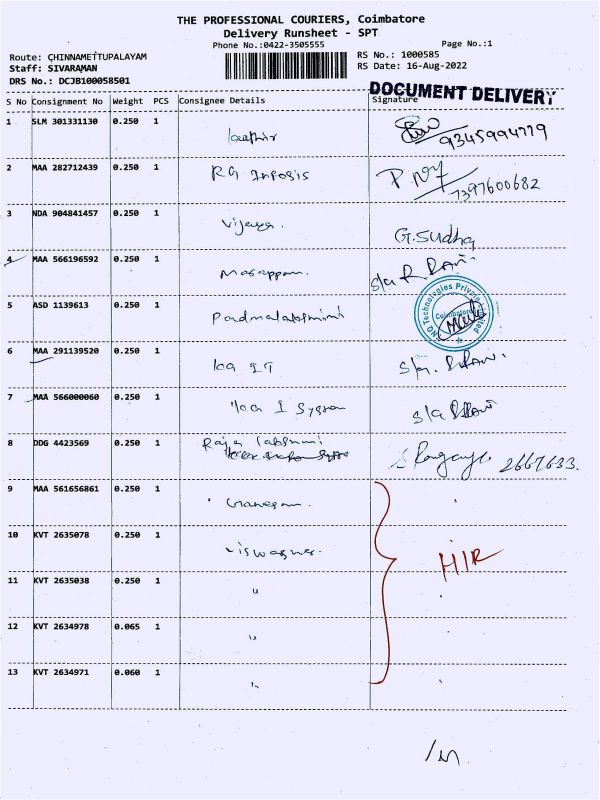 THE PROFESSIONAL COURIERS, Coimbatore
Delivery Runsheet - SPT
Phone No.:0422-3505555
Page No.:1
Route: CHINNAMETTUPALAYAM
RS No.: 1000585
Staff: SIVARAMAN
RS Date: 16-Aug-2022
DRS No.: DCJB100058501
DOCUMENT DELIVERY
S No Consignment No Weight PCS Consignee Details Signature
1 SLM 301331130 0.250 1 9345994779
2 MAA 282712439 0.250 1 RG Infosis 7397600682
3 NDA 904841457 0.250 1 Vijaya. G.Sudha
4 MAA 566196592 0.250 1 Masappan.
5 ASD 1139613 0.250 1 Padmalakshmimi
6 MAA 291139520 0.250 1
7 MAA 566000060 0.250 1
8 DDG 4423569 0.250 1 2667633.
9 MAA 561656861 0.250 1 Ganesan.
10 KVT 2635078 0.250 1 Viswagner. HIR
11 KVT 2635038 0.250 1 "
12 KVT 2634978 0.065 1 "
13 KVT 2634971 0.060 1 "